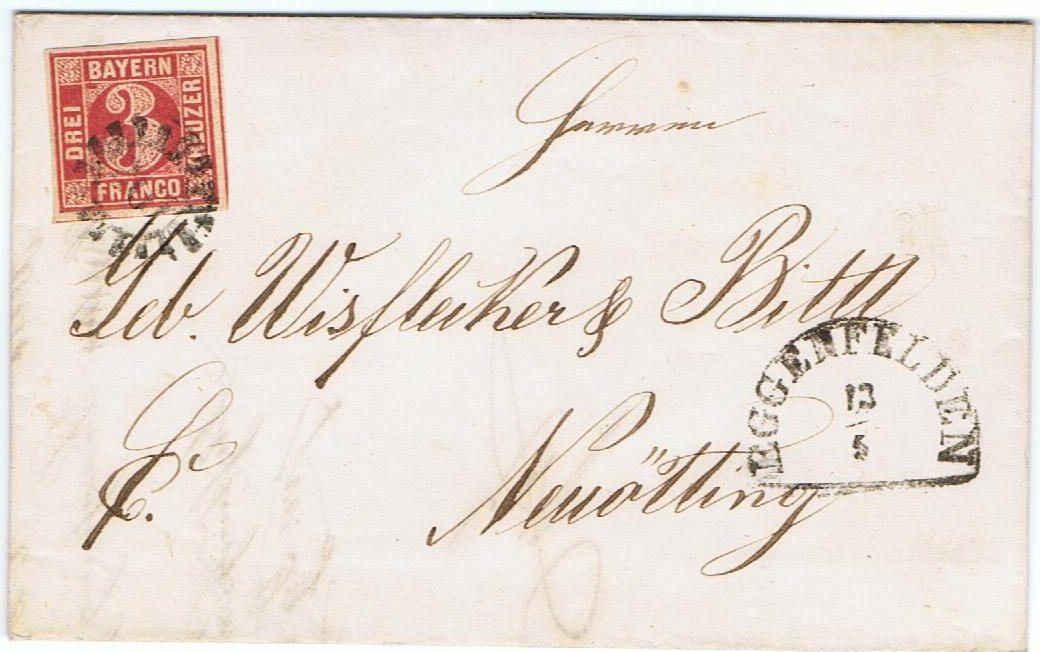 BAYERN
DREI
3
KREUZER
FRANCO
Herren
Geb. Wisfleiker & Bittl
Neuötting
EGGENFELDEN
13
5